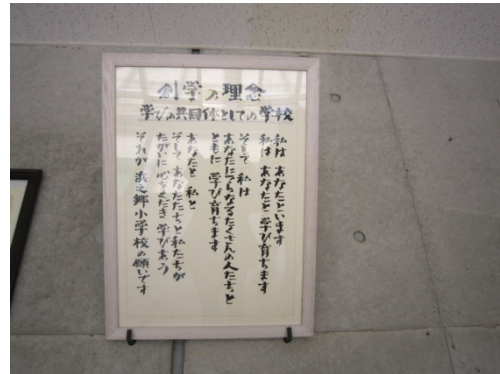 創学の理念
学びの共同体としての学校
私は あなたといます
私は あなたと 学び育ちます
そして 私は
あなたにつらなるたくさんの人たちと
ともに 学び育ちます
あなたと 私と
そして あなたたちと私たちが
たがいに 心をくだき 学びあう
それが 浜之郷小学校の願いです